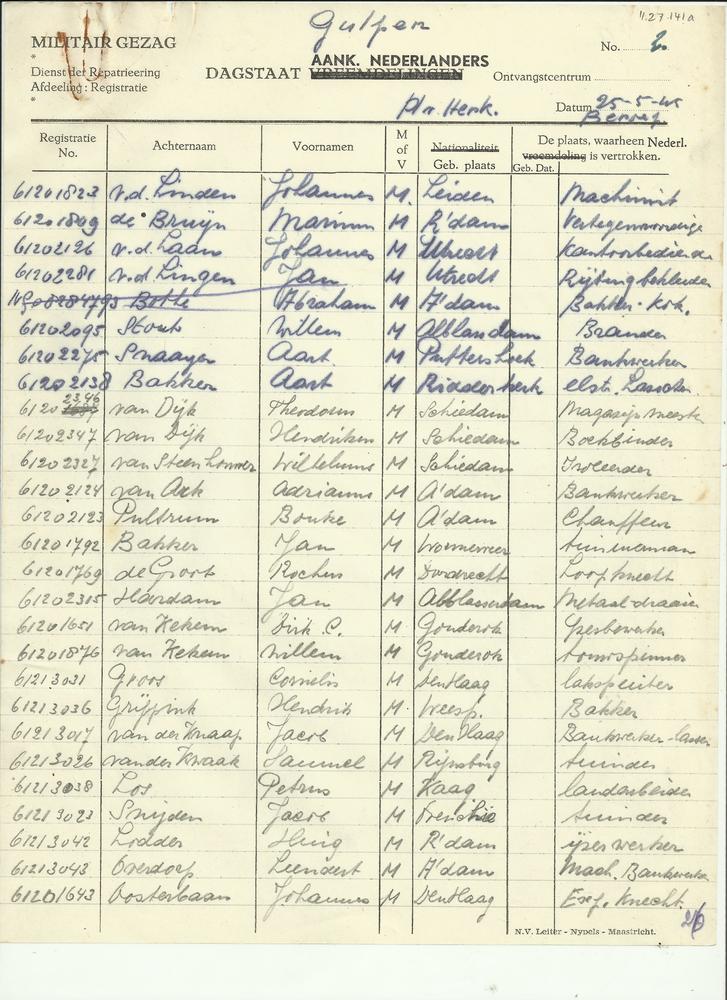 11.27.141a
Gulpen
MILITAIR GEZAG
No. 2.
*
Dienst der Repatrieering
Afdeeling: Registratie
*
DAGSTAAT VREEMDELINGEN AANK. NEDERLANDERS
Ontvangstcentrum
Datum 25-5-45
Beroep
Registratie No. Achternaam Voornamen M of V Nationaliteit Geb. plaats Geb. Dat. De plaats, waarheen Nederl. vreemdeling is vertrokken.
61201823 v.d. Linden Johannes M. Leiden Machinist
61201809 de Bruijn Marinus M R'dam Vertegenwoordiger
61202126 v.d. Laan Johannes M Utrecht Kantoorbediende
61202281 v.d. Lingen Jan M Utrecht
Botte Abraham M A'dam Bakker-Kok.
61202095 Stout Willem M Alblasdam Brander
61202275 Snaayer Aart M Puttershoek Bankwerker
61202138 Bakker Aart M Ridderkerk elstr. Lasscher
61202346 van Dijk Theodorus M Schiedam Magazijnmeester
61202347 van Dijk Hendrikus M Schiedam Boekbinder
61202327 Wilhelmus M Schiedam Isoleerder
61202124 van Ark Adrianus M A'dam Bankwerker
61202123 Pultrum Bouke M A'dam Chauffeur
61201792 Bakker Jan M Wormerveer timmerman
61201769 de Groot Rochus M Dordrecht Loopknecht
61202315 Haardam Jan M Alblasserdam Metaal-draaier
61201651 van Kekem Dirk C. M Gouderok Ijzerbewerker
61201876 van Kekem Willem M Gouderok
61213031 Groos Cornelis M Den Haag lakspuiter
61213036 Grijpink Hendrik M Weesp. Bakker
61213017 van der Knaap Jacob M Den Haag Bankwerker-lasser
61213026 van der Kwaak Samuel M Rijnsburg tuinder
61213038 Los Petrus M Kaag landarbeider
61213023 Snijder Jacob M tuinder
61213042 Lodder Huig M R'dam ijzerwerker
61213043 Overdorp Leendert M A'dam Mach. Bankwerker
61201643 Oosterbaan Johannes M Den Haag Exp. Knecht.
26
N.V. Leiter - Nypels - Maastricht.